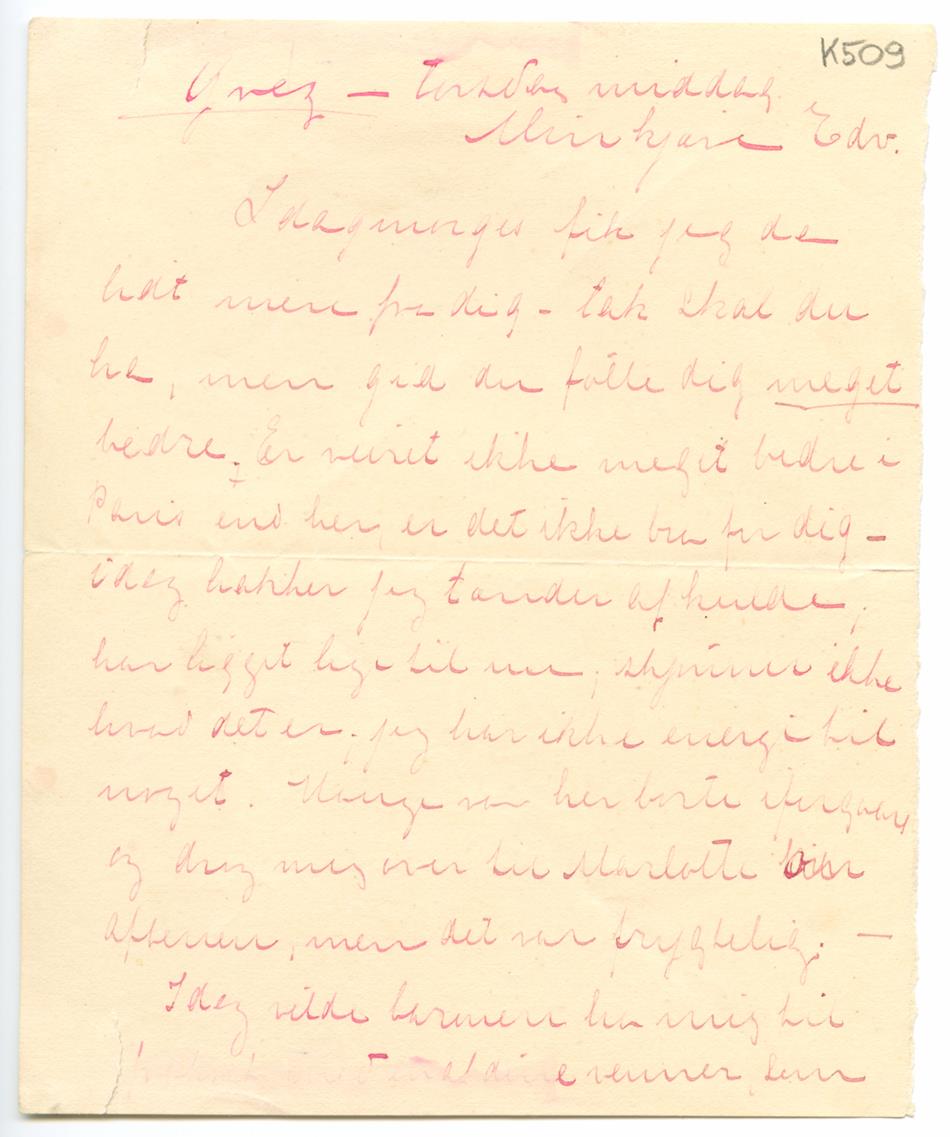 K509
Grez — torsdag middag.
Min kjære Edv.
Idagmorges fik jeg da
lidt mere fra dig – tak skal du
ha, men gid du følte dig meget
bedre. Er veiret ikke meget bedre i
Paris end her, er det ikke bra for dig –
idag hakker jeg tænder af kulde,
har ligget lige til nu, skjønner ikke
hvad det er. jeg har ikke energi til
noget. var her borte iforgaars
og drog mig over til Marlotte
aftenen, men det var frygtelig. —
Idag vilde ha mig til
med en af dine venner, som